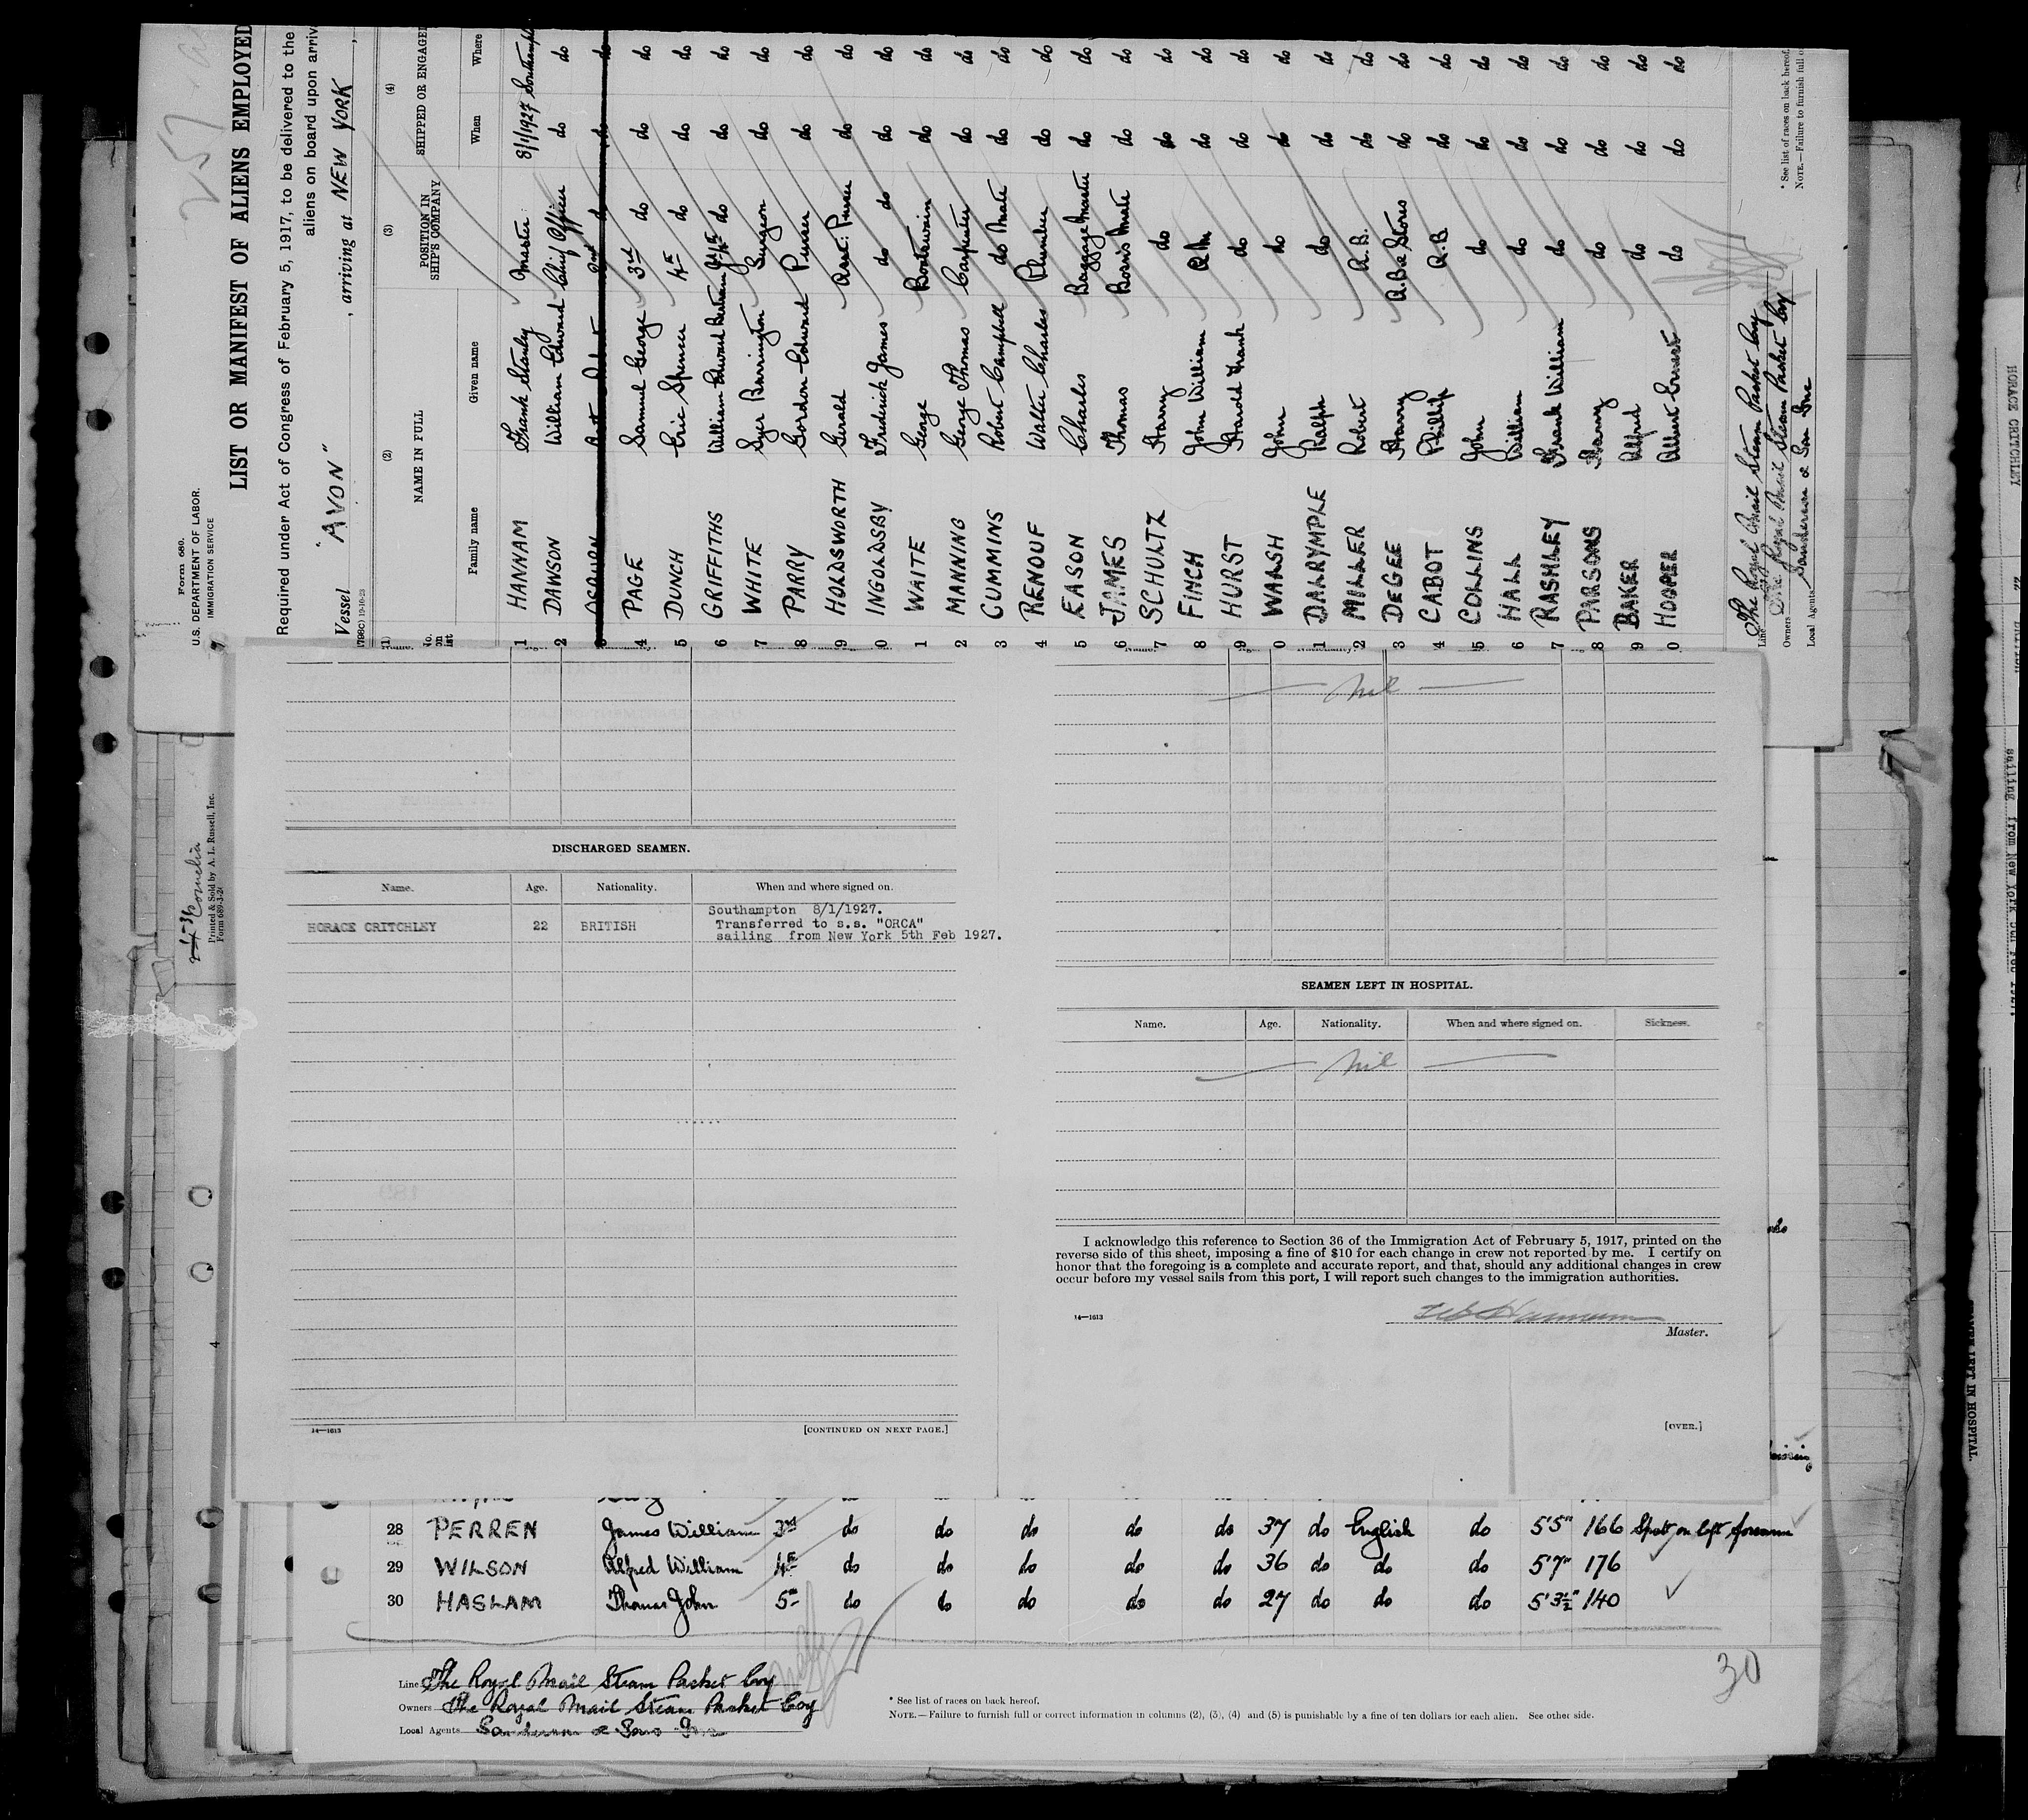 Form 680.
U.S. DEPARTMENT OF LABOR.
IMMIGRATION SERVICE
LIST OR MANIFEST OF ALIENS EMPLOYED
Required under Act of Congress of February 5, 1917, to be delivered to the
aliens on board upon arriv
Vessel "AVON", arriving at NEW YORK,
(1) (2) (3) (4)
NAME IN FULL POSITION IN SHIP'S COMPANY SHIPPED OR ENGAGED
Family name Given name When Where
1 HANNAM Frank Stanley Master 8/1/1927 Southampt
2 DAWSON William Edward Chief Officer do do
4 PAGE Samuel George 3rd do do do
5 DUNCH Eric Spencer 4th do do do
6 GRIFFITHS William do do do
7 WHITE Syer Barrington Surgeon do do
8 PARRY Gordon Edward Purser do do
9 HOLDSWORTH Gerald Asst: Purser do do
0 INGOLDSBY Frederick James do do do do
1 WAITE George Boatswain do do
2 MANNING George Thomas Carpenter do do
3 CUMMINS Robert Campbell do Mate do do
4 RENOUF Walter Charles Plumber do do
5 EASON Charles Baggage Master do do
6 JAMES Thomas Bosn's Mate do do
7 SCHULTZ Harry do do do
8 FINCH John William Q.M. do do
9 HURST Harold Frank do do do
0 WALSH John do do do
1 DALRYMPLE Ralph do do do
2 MILLER Robert A.B. do do
3 DEGEE Harry A.B. & Stores do do
4 CABOT Phillip A.B. do do
5 COLLINS John do do do
6 HALL William do do do
7 RASHLEY Frank William do do do
8 PARSONS Harry do do do
9 BAKER Alfred do do do
0 HOOPER Albert Ernest do do do
Line The Royal Mail Steam Packet Coy
Owners The Royal Mail Steam Packet Coy
Local Agents Sanderson & Son Inc
* See list of races on back hereof.
NOTE.—Failure to furnish full o
Cornelia
Printed & Sold by A. L. Russell, Inc.
DISCHARGED SEAMEN.
Name. Age. Nationality. When and where signed on.
HORACE CRITCHLEY 22 BRITISH Southampton 8/1/1927.
Transferred to s.s. "ORCA"
sailing from New York 5th Feb 1927.
14—1613
[CONTINUED ON NEXT PAGE.]
Nil
SEAMEN LEFT IN HOSPITAL.
Name. Age. Nationality. When and where signed on. Sickness.
Nil
I acknowledge this reference to Section 36 of the Immigration Act of February 5, 1917, printed on the
reverse side of this sheet, imposing a fine of $10 for each change in crew not reported by me. I certify on
honor that the foregoing is a complete and accurate report, and that, should any additional changes in crew
occur before my vessel sails from this port, I will report such changes to the immigration authorities.
14—1613
Master.
[OVER.]
28 PERREN James William 3rd do do do do do 37 do English do 5'5" 166 Spot on left forearm
29 WILSON Alfred William 4th do do do do do 36 do do do 5'7" 176
30 HASLAM Thomas John 5th do do do do do 27 do do do 5'3½" 140
30
Line The Royal Mail Steam Packet Coy
Owners The Royal Mail Steam Packet Coy
Local Agents Sanderson & Sons Inc
* See list of races on back hereof.
NOTE.—Failure to furnish full or correct information in columns (2), (3), (4) and (5) is punishable by a fine of ten dollars for each alien. See other side.
HORACE CRITCHLEY